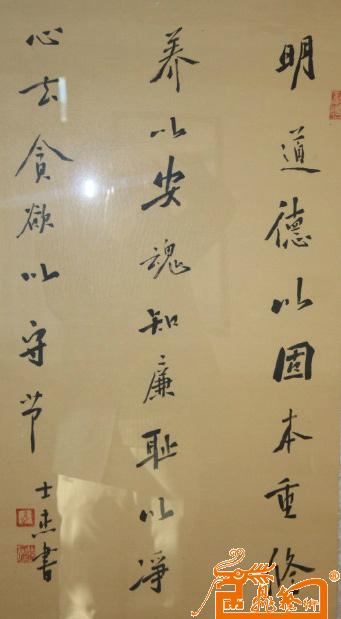 明道德以固本重修
养以安魂知廉耻以净
心去贪欲以守节
士杰書